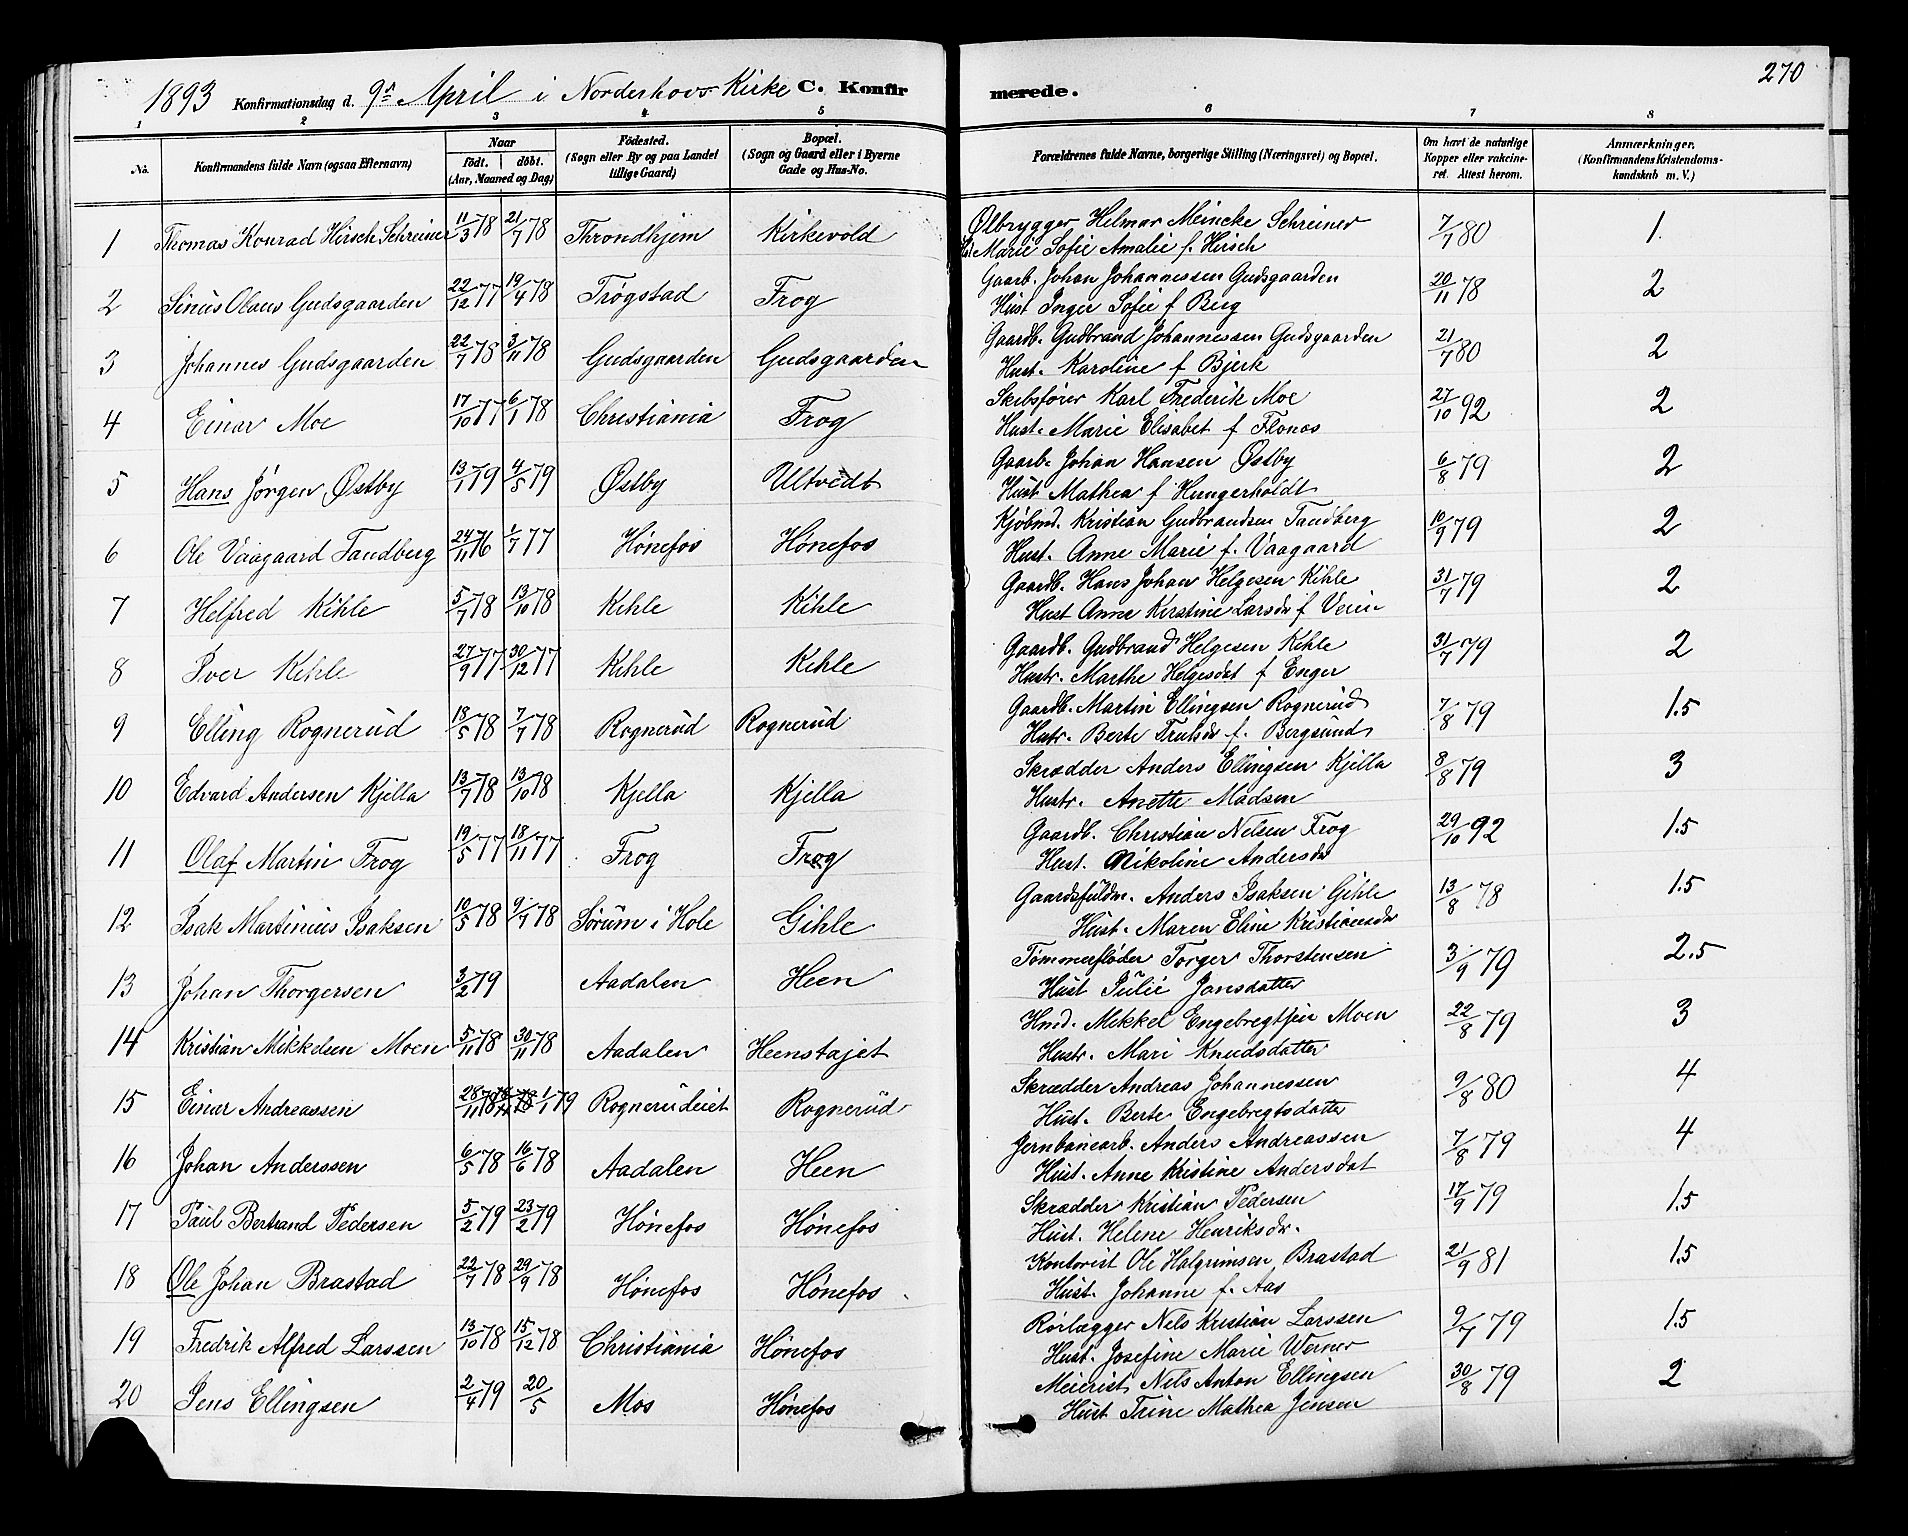 270
1893 Konfirmationsdag d. 9de April i Norderhovs Kirke C. Konfirmerede.
1 2 3 4 5 6 7 8
No.
Konfirmandens fulde Navn (ogsaa Efternavn)
Naar
födt. döbt.
(Aar, Maaned og Dag)
Födested.
(Sogn eller By og paa Landet
tillige Gaard)
Bopæl.
(Sogn og Gaard eller i Byerne
Gade og Hus-No.
Forældrenes fulde Navne, borgerlige Stilling (Næringsvei) og Bopæl.
Om havt de naturlige
Kopper eller vakcine-
ret. Attest herom.
Anmærkninger.
(Konfirmandens Kristendoms-
kundskab m. V.)
1 Thomas Konrad Hirsch Schreiner 11/3 78 21/7 78 Throndhjem Kirkevold Ølbrygger Helmar Meincke Schreiner 7/7 80 1.
Marie Sofie Amalie f. Hirsch
2 Sinus Olaus Gudsgaarden 22/12 77 19/4 78 Trøgstad Frog Gaarb. Johan Johannessen Gudsgaarden 20/11 78 2
Hust Inger Sofie f Berg
3 Johannes Gudsgaarden 22/7 78 3/11 78 Gudsgaarden Gudsgaarden Gaardb. Gudbrand Johannessen Gudsgaarden 21/7 80 2
Hust. Karoline f Bjerk
4 Einar Moe 17/10 77 6/1 78 Christiania Frog Skibsfører Karl Frederik Moe 27/10 92 2
Hust. Marie Elisabet f Flonas
5 Hans Jørgen Østby 13/1 79 4/5 79 Østby Ultvedt Gaarb. Johan Hansen Østby 6/8 79 2
Hust Mathea f Hungerholdt
6 Ole Vaagaard Tandberg 24/11 76 1/7 77 Hønefos Hønefos Kjøbmd. Kristian Gudbrandsen Tandberg 10/9 79 2
Hust. Anne Marie f. Vaagaard
7 Helfred Kihle 5/7 78 13/10 78 Kihle Kihle Gaardb. Hans Johan Helgesen Kihle 31/7 79 2
Hust Anne Kirstine Larsdr f Vein
8 Iver Kihle 27/9 77 30/12 77 Kihle Kihle Gaardb. Gudbrand Helgesen Kihle 31/7 79 2
Hustr. Marthe Helgesdat f Enger
9 Elling Rognerud 18/5 78 7/7 78 Rognerud Rognerud Gaardb. Martin Ellingsen Rognerud 7/8 79 1.5
Hutr. Berte Trulsdr f. Bergsund
10 Edvard Andersen Kjella 13/7 78 13/10 78 Kjella Kjella Skrædder Anders Ellingsen Kjella 8/8 79 3
Hustr. Anette Madsen
11 Olaf Martin Frog 19/5 77 18/11 77 Frog Frog Gaardb. Christian Nelsen Frog 29/10 92 1.5
Hust. Nikoline Andersdr
12 Isak Martinius Isaksen 10/5 78 9/7 78 Sørum i Hole Gihle Gaardsfuldm. Anders Isaksen Gihle 13/8 78 1.5
Hust. Maren Eline Kristiansdr
13 Johan Thorgersen 3/2 79 Aadalen Heen Tømmerfløder Torger Thorstensen 3/9 79 2.5
Hust Julie Jonsdatter
14 Kristian Mikkelsen Moen 5/11 78 30/11 78 Aadalen Heenstajet Hmd. Mikkel Engebregtsen Moen 22/8 79 3
Hustr. Mari Knudsdatter
15 Einar Andreassen 28/11 78 1/1 79 Rognerudeiet Rognerud Skrædder Andreas Johannessen 9/8 80 4
Hust. Berte Engebregtsdatter
16 Johan Anderssen 6/5 78 16/6 78 Aadalen Heen Jernbanearb. Anders Andreassen 7/8 79 4
Hust. Anne Kristine Andersdat
17 Paul Bertrand Pedersen 5/2 79 23/2 79 Hønefos Hønefos Skrædder Kristian Pedersen 17/9 79 1.5
Hust. Helene Henriksdr.
18 Ole Johan Brastad 22/7 78 29/9 78 Hønefos Hønefos Kontorist Ole Halgrimsen Brastad 21/9 81 1.5
Hust. Johanne f. Aas
19 Fredrik Alfred Larssen 13/10 78 15/12 78 Christiania Hønefos Rørlægger Nels Kristian Larssen 9/7 79 1.5
Hust. Josefine Marie Werner
20 Jens Ellingsen 2/4 79 20/5 Mos Hønefos Meierist Nels Anton Ellingsen 30/8 79 2
Hust Trine Mathea Jensen